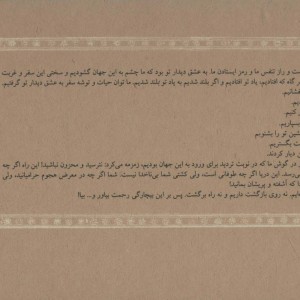 ست و راز تنفس ما و رمز ایستادن ما. به عشق دیدار تو بود که ما چشم به این جهان گشودیم و سختی این سفر و غربت
گاه که افتادیم، یاد تو افتادیم و اگر بلند شدیم به یاد تو بلند شدیم. ما توان حیات و توشه سفر به عشق دیدار تو گرفتیم.
فشانیم.
یم.
کنیم.
بسپاریم.
شین تو را بشنویم
ت بگستریم.
دیار کردند.
در گوش ما که در نوبت تردید برای ورود به این جهان بودیم، زمزمه می‌کرد: نترسید و محزون نباشید! این راه اگر چه
می‌رسد. این دریا اگر چه طوفانی است، ولی کشتی شما بی‌ناخدا نیست. شما اگر چه در معرض هجوم حرفهائید، ولی
ا که آشفته و پریشان بمانید!
ه‌ایم. نه روی بازگشت داریم و نه راه برگشت. پس بر این بیچارگی رحمت بیاور و... بیا!